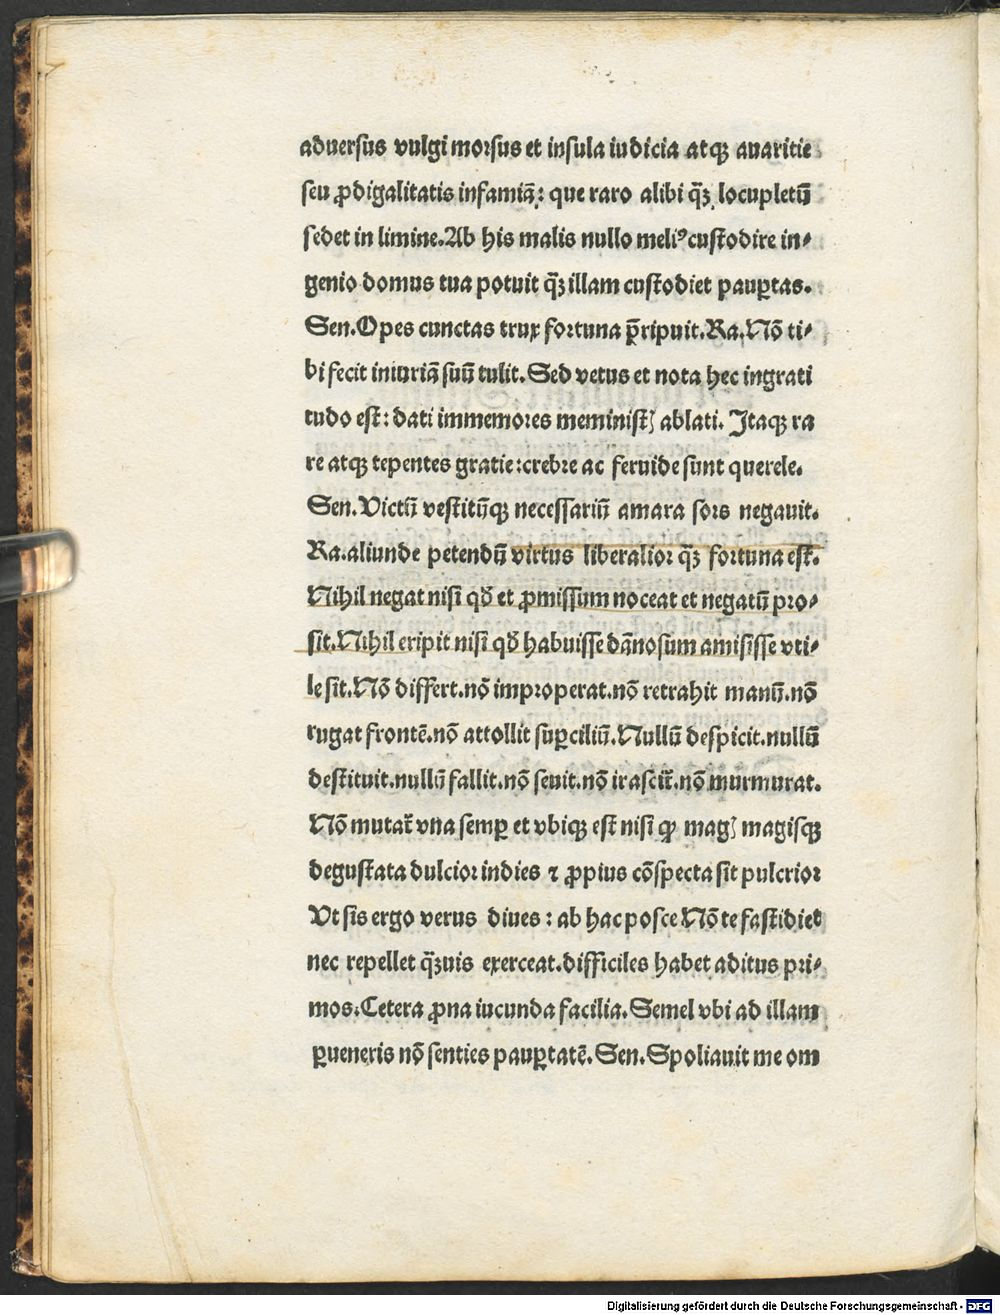 aduersus vulgi morsus et insula iudicia atqꝫ auaritie
seu ꝓdigalitatis infamiā: que raro alibi q̄ꝫ locupletū
sedet in limine. Ab his malis nullo meliꝰ custodire in⸗
genio domus tua potuit q̄ꝫ illam custodiet pauꝑtas.
Sen. Opes cunctas trux fortuna p̄ripuit. Ra. Nō ti⸗
bi fecit iniuriā suū tulit. Sed vetus et nota hec ingrati
tudo est: dati immemores meministꝭ ablati. Itaqꝫ ra
re atqꝫ tepentes gratie: crebre ac feruide sunt querele.
Sen. Victū vestitūqꝫ necessariū amara sors negauit.
Ra. aliunde petendū virtus liberalior q̄ꝫ fortuna est.
Nihil negat nisi qđ et ꝓmissum noceat et negatū pro⸗
sit. Nihil eripit nisi qđ habuisse dānosum amisisse vti⸗
le sit. Nō differt. nō improperat. nō retrahit manū. nō
rugat frontē. nō attollit suꝑciliū. Nullū despicit. nullū
destituit. nullū fallit. nō seuit. nō irascit̄. nō murmurat.
Nō mutat̄ vna semꝑ et vbiqꝫ est nisi ꝙ magꝭ magisqꝫ
degustata dulcior indies ⁊ ꝓpius cōspecta sit pulcrior
Vt sis ergo verus diues: ab hac posce Nō te fastidiet
nec repellet q̄ꝫuis exerceat. difficiles habet aditus pri⸗
mos. Cetera ꝓna iucunda facilia. Semel vbi ad illam
ꝑueneris nō senties pauꝑtatē. Sen. Spoliauit me om
Digitalisierung gefördert durch die Deutsche Forschungsgemeinschaft - DFG